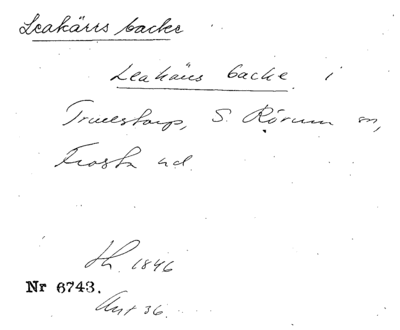 Leakärrs backe
Leakärs backe i
Truelstorp, S. Rörum sn,
Frosta hd.
Lh. 1846
Nr 6743.
Ant 36.